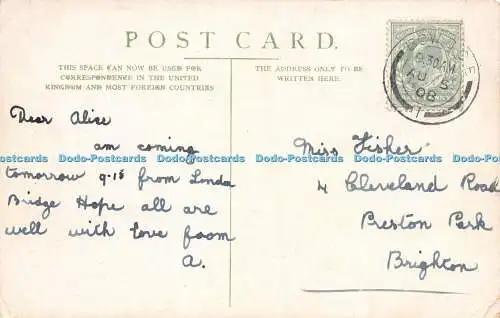 POST CARD.
THIS SPACE CAN NOW BE USED FOR
CORRESPONDENCE IN THE UNITED
KINGDOM AND MOST FOREIGN COUNTRIES
THE ADDRESS ONLY TO BE
WRITTEN HERE.
9.30AM
AU 5
08
Dear Alice
am coming
tomorrow 9-15 from London
Bridge Hope all are
well with love from
A.
Miss Fisher
4 Cleveland Road
Preston Park
Brighton
Dodo-Postcards Dodo-Postcards Dodo-Postcards Dodo-Postcards Dodo-Postcards